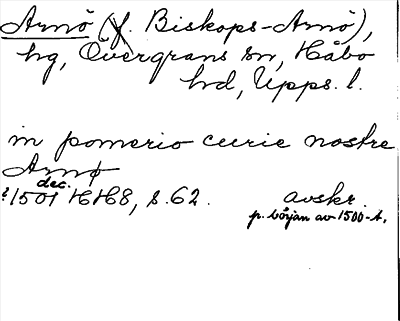 Arnö (f. Biskops-Arnö),
hg, Övergrans sn, Håbo
hd, Upps. l.
in pomerio curie nostre
Arnø
dec.
?1501 HH8, s.62. avskr.
p. början av 1500-t.